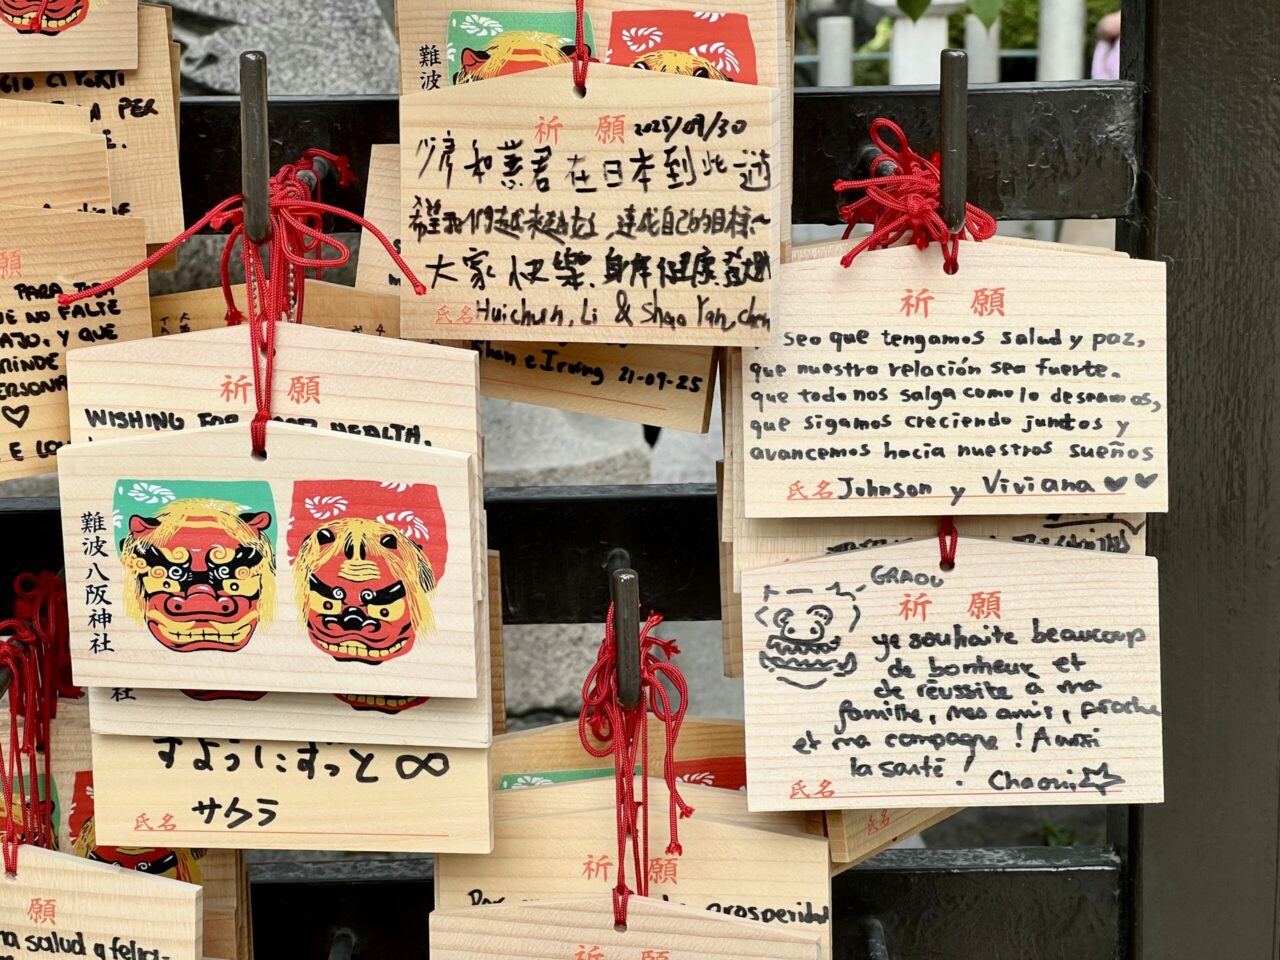 PER
E.
難波
祈願 2025/09/30
少彥和蕙君在日本到此一遊
希望我們越來越, 達成自己的目標~
大家快樂, 身体健康
氏名 Huichun, Li & Shao Yan, chen
願
PARA TODA
NO FALTE
Y QUE
ERSONA
♡
祈願
WISHING FOR GOOD HEALTH,
e Irving 21-09-25
祈願
seo que tengamos salud y paz,
que nuestra relación sea fuerte.
que todo nos salga como lo deseamos,
que sigamos creciendo juntos y
avancemos hacia nuestros sueños
氏名 Johnson y Viviana ♥♥
難波八阪神社
社
すようにずっと∞
サクラ
氏名
GRAOU
祈願
je souhaite beaucoup
de bonheur et
de réussite à ma
famille, mes amis, proche
et ma compagne ! Aussi
la santé !
氏名 Chaoui
氏名
祈願
prosperidad
祈願
願
salud y felici-